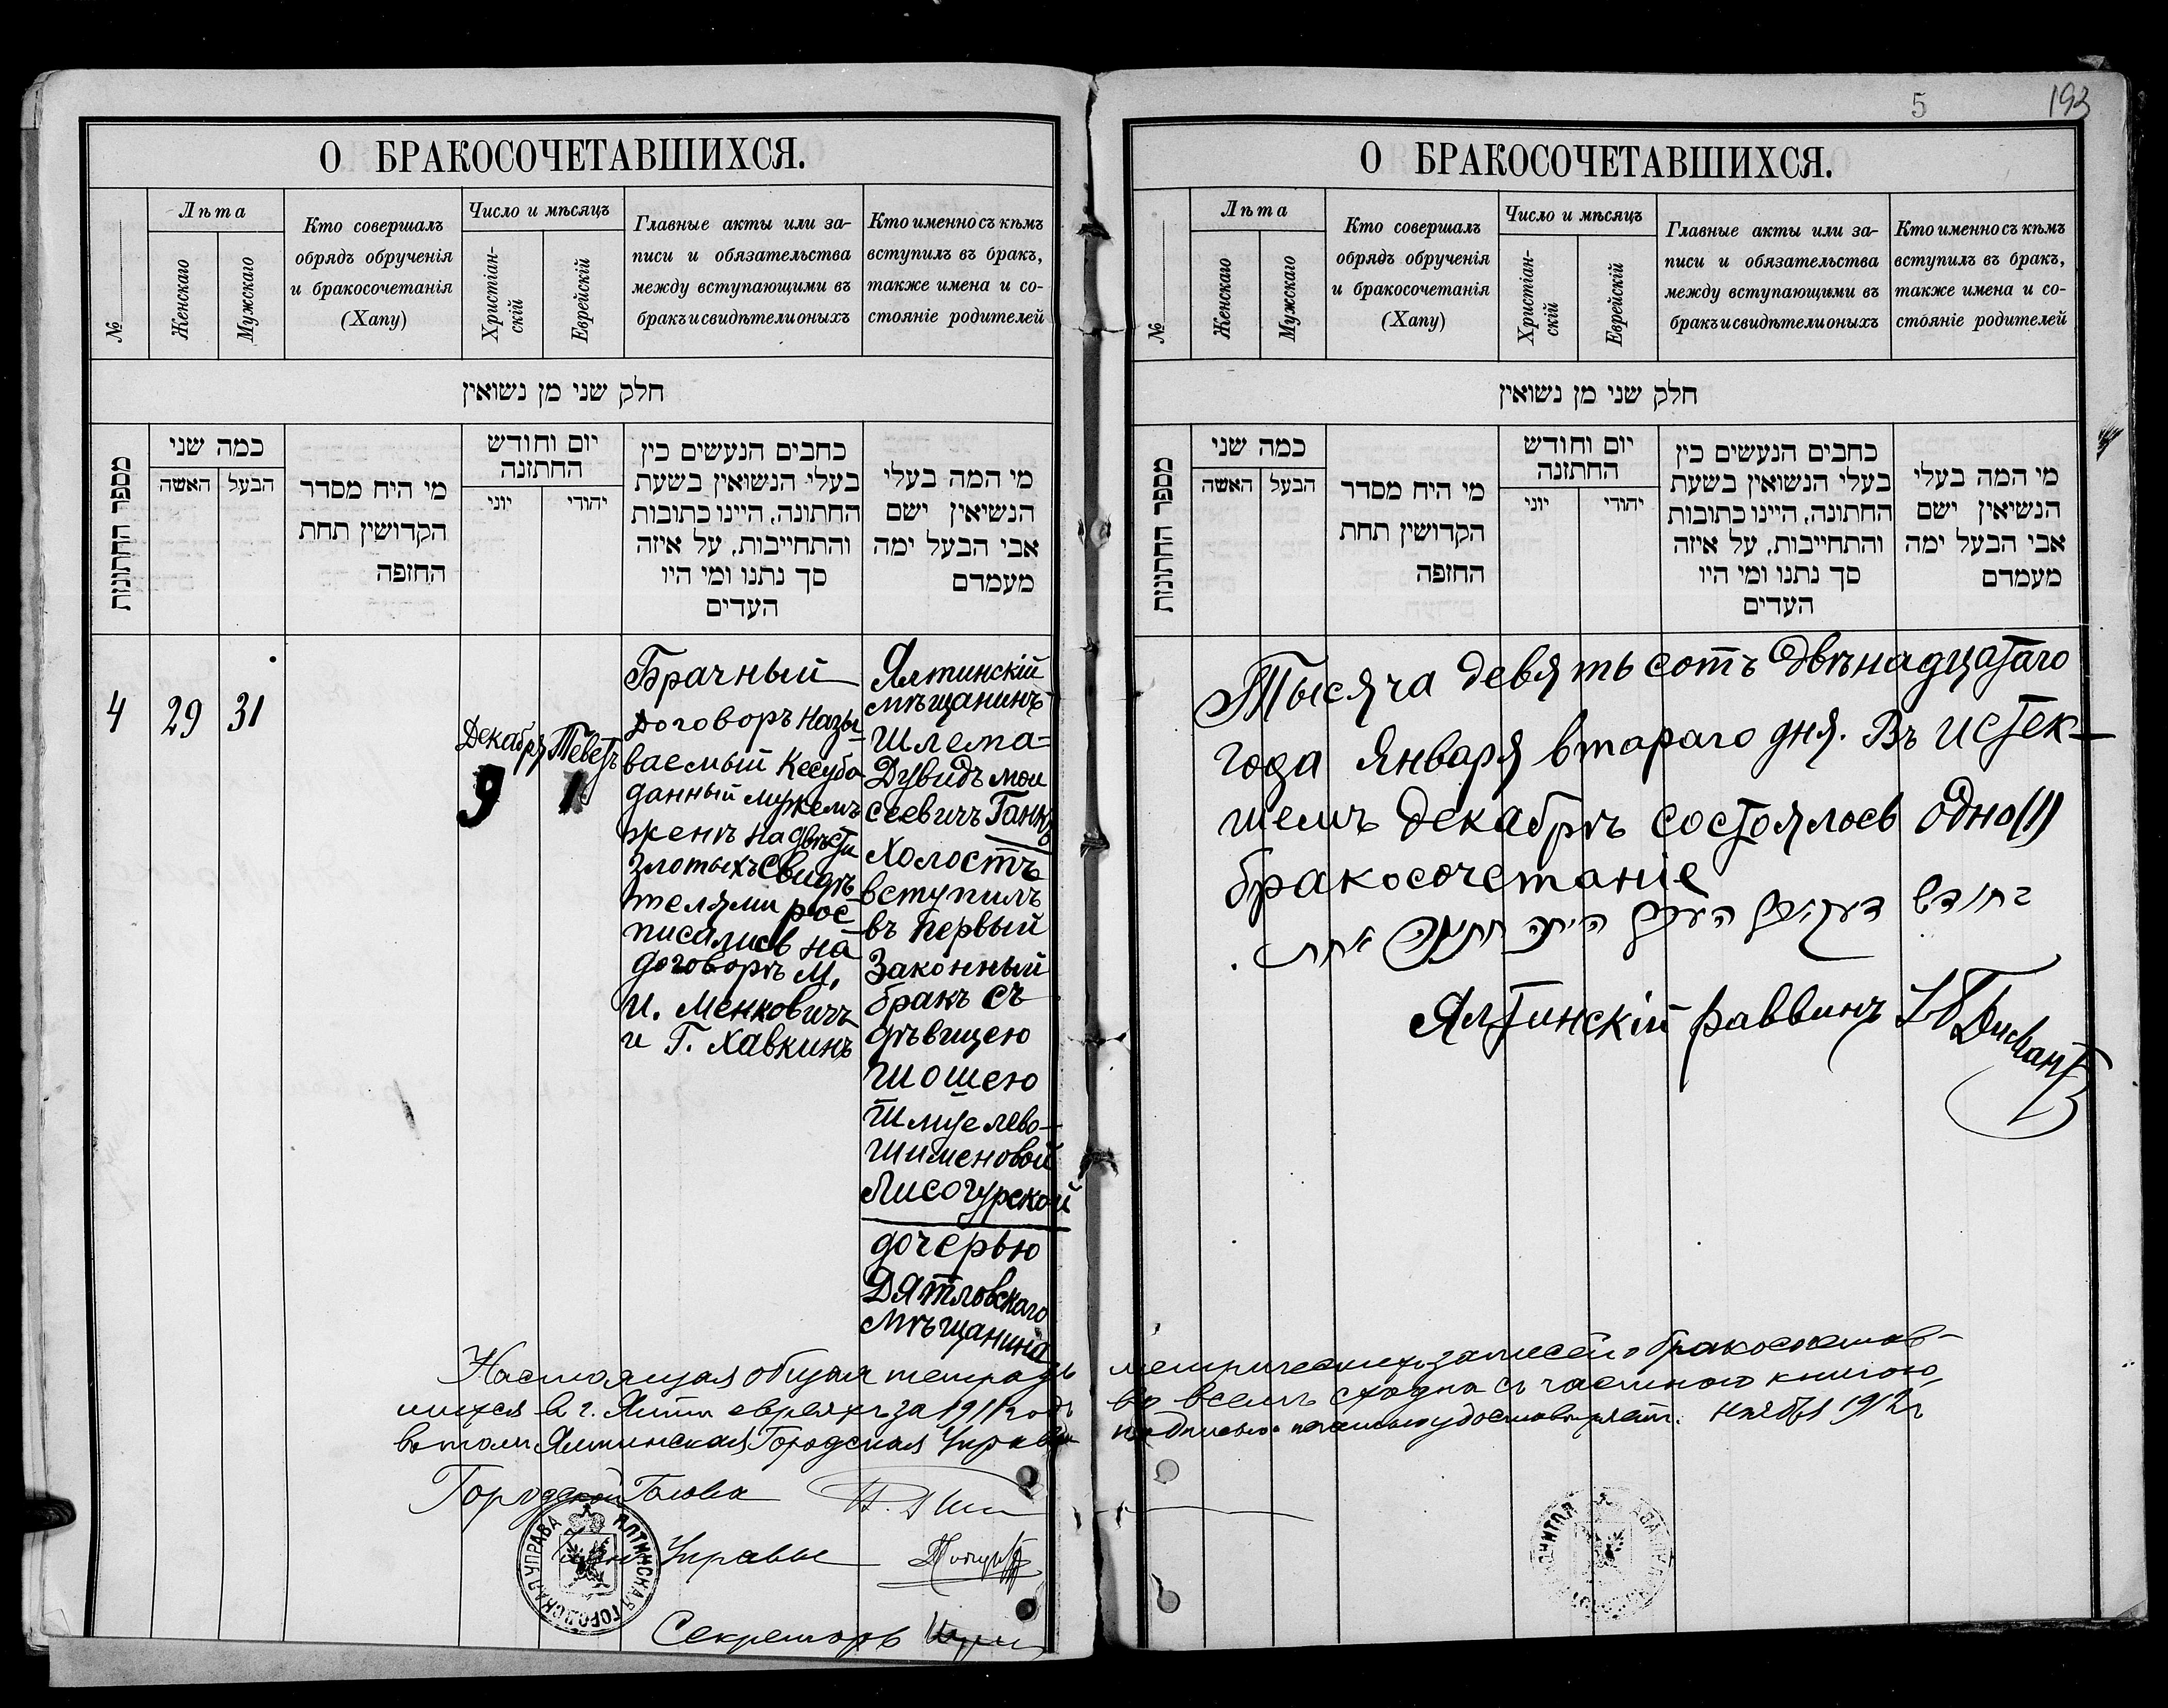 193
5
О БРАКОСОЧЕТАВШИХСЯ.
№
Лѣта
Женскаго
Мужскаго
Кто совершалъ
обрядъ обрученія
и бракосочетанія
(Хапу)
Число и мѣсяцъ
Христіан-
скій
Еврейскій
Главные акты или за-
писи и обязательства
между вступающими въ
бракъ и свидѣтели оныхъ
Кто именно съ кѣмъ
вступилъ въ бракъ,
также имена и со-
стояніе родителей
חלק שני מן נשואין
מספר החתונות
כמה שני
האשה
הבעל
מי היח מסדר
הקדושין תחת
החופה
יום וחודש
החתונה
יוני
יהודי
כחבים הנעשים כין
בעלי הנשואין בשעת
החתונה, היינו כתובות
והתחייבות, על איזה
סך נתנו ומי היו
העדים
מי המה בעלי
הנשיאין ישם
אבי הבעל ימה
מעמדם
4
29
31
Декабря
9
Теветъ
1
Брачный
договоръ назы-
ваемый Кесуба
данный мужемъ
женѣ на двѣсти
злотыхъ Свидѣ-
телями рос-
писались на
договорѣ М.
И. Менковичъ
и Г. Хавкинъ
Ялтинскій
мѣщанинъ
Шлема-
Дувидъ Мои
сеевичъ Ганкъ
холостъ
вступилъ
въ первый
Законный
бракъ съ
дѣвицею
Шошею
Шмуелево-
Шименовой
Лисогурской
дочерью
Дятловскаго
мѣщанина
Настоящая общая тетрадь
шихся в г. Ялтѣ евреяхъ за 1911 годъ
въ томъ Ялтинская Городская Управа
Городской Голова
Членъ Управы
Секретарь
ЯЛТИНСКАЯ ГОРОДСКАЯ УПРАВА
О БРАКОСОЧЕТАВШИХСЯ.
№
Лѣта
Женскаго
Мужскаго
Кто совершалъ
обрядъ обрученія
и бракосочетанія
(Хапу)
Число и мѣсяцъ
Христіан-
скій
Еврейскій
Главные акты или за-
писи и обязательства
между вступающими въ
бракъ и свидѣтели оныхъ
Кто именно съ кѣмъ
вступилъ въ бракъ,
также имена и со-
стояніе родителей
חלק שני מן נשואין
מספר החתונות
כמה שני
האשה
הבעל
מי היח מסדר
הקדושין תחת
החופה
יום וחודש
החתונה
יוני
יהודי
כחבים הנעשים כין
בעלי הנשואין בשעת
החתונה, היינו כתובות
והתחייבות, על איזה
סך נתנו ומי היו
העדים
מי המה בעלי
הנשיאין ישם
אבי הבעל ימה
מעמדם
Тысяча девятьсотъ двѣнадцатаго
года Января втораго дня. Въ истек-
шемъ декабрѣ состоялось одно (1)
бракосочетаніе
בחודש דעקאבר העבר היתה חתונה אחת.
Ялтинскій раввинъ
метрическихъ записей о бракосочетав-
во всемъ сходна съ частною книгою,
подписью и печатью удостовѣряетъ. Ноября 1912 г